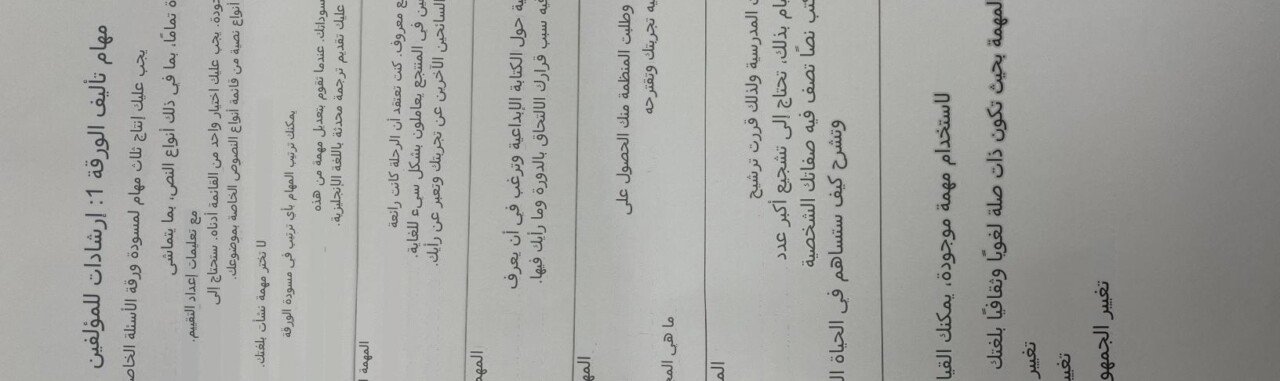 مهام تأليف الورقة 1: إرشادات للمؤلفين
يجب عليك إنتاج ثلاث مهام لمسودة ورقة الأسئلة
ة تمامًا، بما في ذلك أنواع النص، بما يتماشى
مع تعليمات إعداد التقييم.
جودة. يجب عليك اختيار واحد من القائمة أدناه. ستحتاج إلى
أنواع نصية من قائمة أنواع النصوص الخاصة بموضوعك.
لا تختر مهمة نشأت بلغتك.
يمكنك ترتيب المهام بأي ترتيب في مسودة الورقة
سوداتك. عندما تقوم بتعديل مهمة من هذه
عليك تقديم ترجمة محدثة باللغة الإنجليزية.
المهمة
ع معروف. كنت تعتقد أن الرحلة كانت رائعة
ين في المنتجع يعاملون بشكل سيء للغاية.
السائحين الآخرين عن تجربتك وتعبر عن رأيك.
ية حول الكتابة الإبداعية وترغب في أن يعرف
فيه سبب قرارك الالتحاق بالدورة وما رأيك فيها.
وطلبت المنظمة منك الحصول على
يه تجربتك وتقترحه
ما هي
ت المدرسية ولذلك قررت ترشيح
يام بذلك، تحتاج إلى تشجيع أكبر عدد
كتب نصًا تصف فيه صفاتك الشخصية
وتشرح كيف ستساهم في الحياة
لاستخدام مهمة موجودة، يمكنك
المهمة بحيث تكون ذات صلة لغويًا وثقافيًا بلغتك
تغيير
تغيير
تغيير